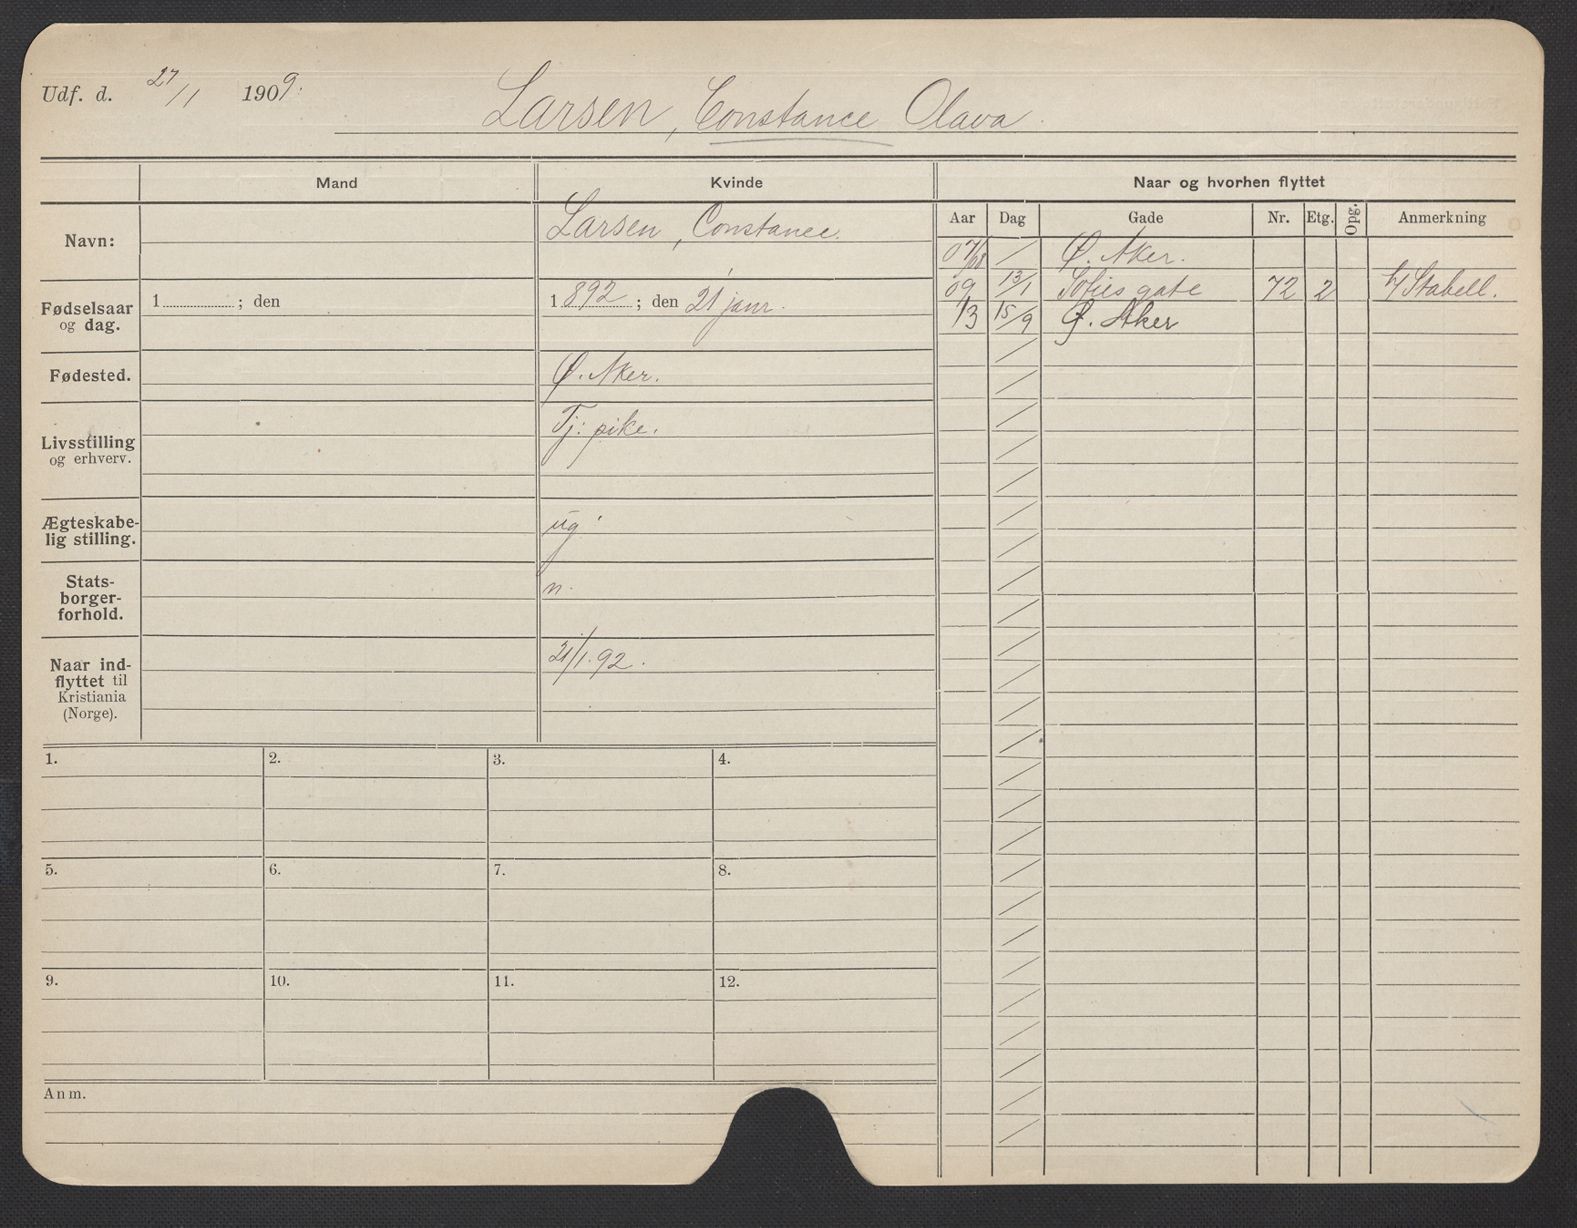 Udf. d. 27/1 1909.
Larsen, Constance Olava.
Mand Kvinde Naar og hvorhen flyttet
Aar Dag Gade Nr. Etg. Opg. Anmerkning
Navn: Larsen, Constance.
07/08 Ø. Aker.
Fødselsaar og dag. 1 ; den 1892 ; den 21 janr.
09 13/1 Sofies gate 72 2 h/ Stabell.
13 15/9 Ø. Aker
Fødested. Ø. Aker.
Livsstilling og erhverv. Tj: pike.
Ægteskabe-
lig stilling. ug.
Stats-
borger-
forhold. n.
Naar ind-
flyttet til
Kristiania
(Norge). 21/1.92.
1. 2. 3. 4.
5. 6. 7. 8.
9. 10. 11. 12.
Anm.